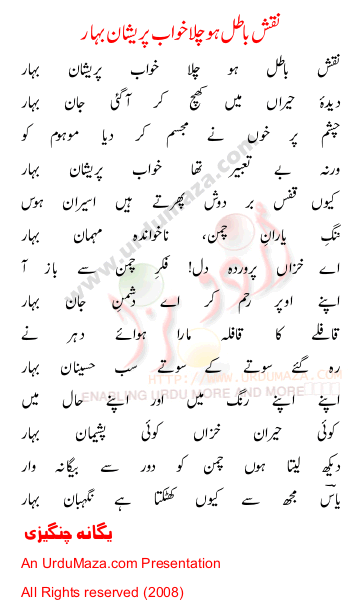 نقش باطل ہو چلا خواب پریشان بہار
نقش باطل ہو چلا خواب پریشان بہار
دیدۂ حیراں میں کھچ کر آ گئی جان بہار
چشم پر خوں نے مجسم کر دیا موہوم کو
ورنہ بے تعبیر تھا خواب پریشان بہار
کیوں قفس بر دوش پھرتے ہیں اسیران ہوس
ننگِ یارانِ چمن، ناخواندہ مہمان بہار
اے خزاں پروردہ دل! فکرِ چمن سے باز آ
اپنے اوپر رحم کر اے دشمنِ جان بہار
قافلے کا قافلہ مارا ہوائے دہر نے
رہ گئے سوتے کے سوتے سب حسینان بہار
اپنے اپنے رنگ میں اور اپنے اپنے حال میں
کوئی حیران خزاں کوئی پشیمان بہار
دیکھ لیتا ہوں چمن کو دور سے بیگانہ وار
یاسؔ مجھ سے کیوں کھٹکتا ہے نگہبان بہار
یگانہ چنگیزی
An UrduMaza.com Presentation
All Rights reserved (2008)
www.urdumaza.com
اردو مزا
HTTP://WWW.URDUMAZA.COM
ENABLING URDU MORE AND MORE